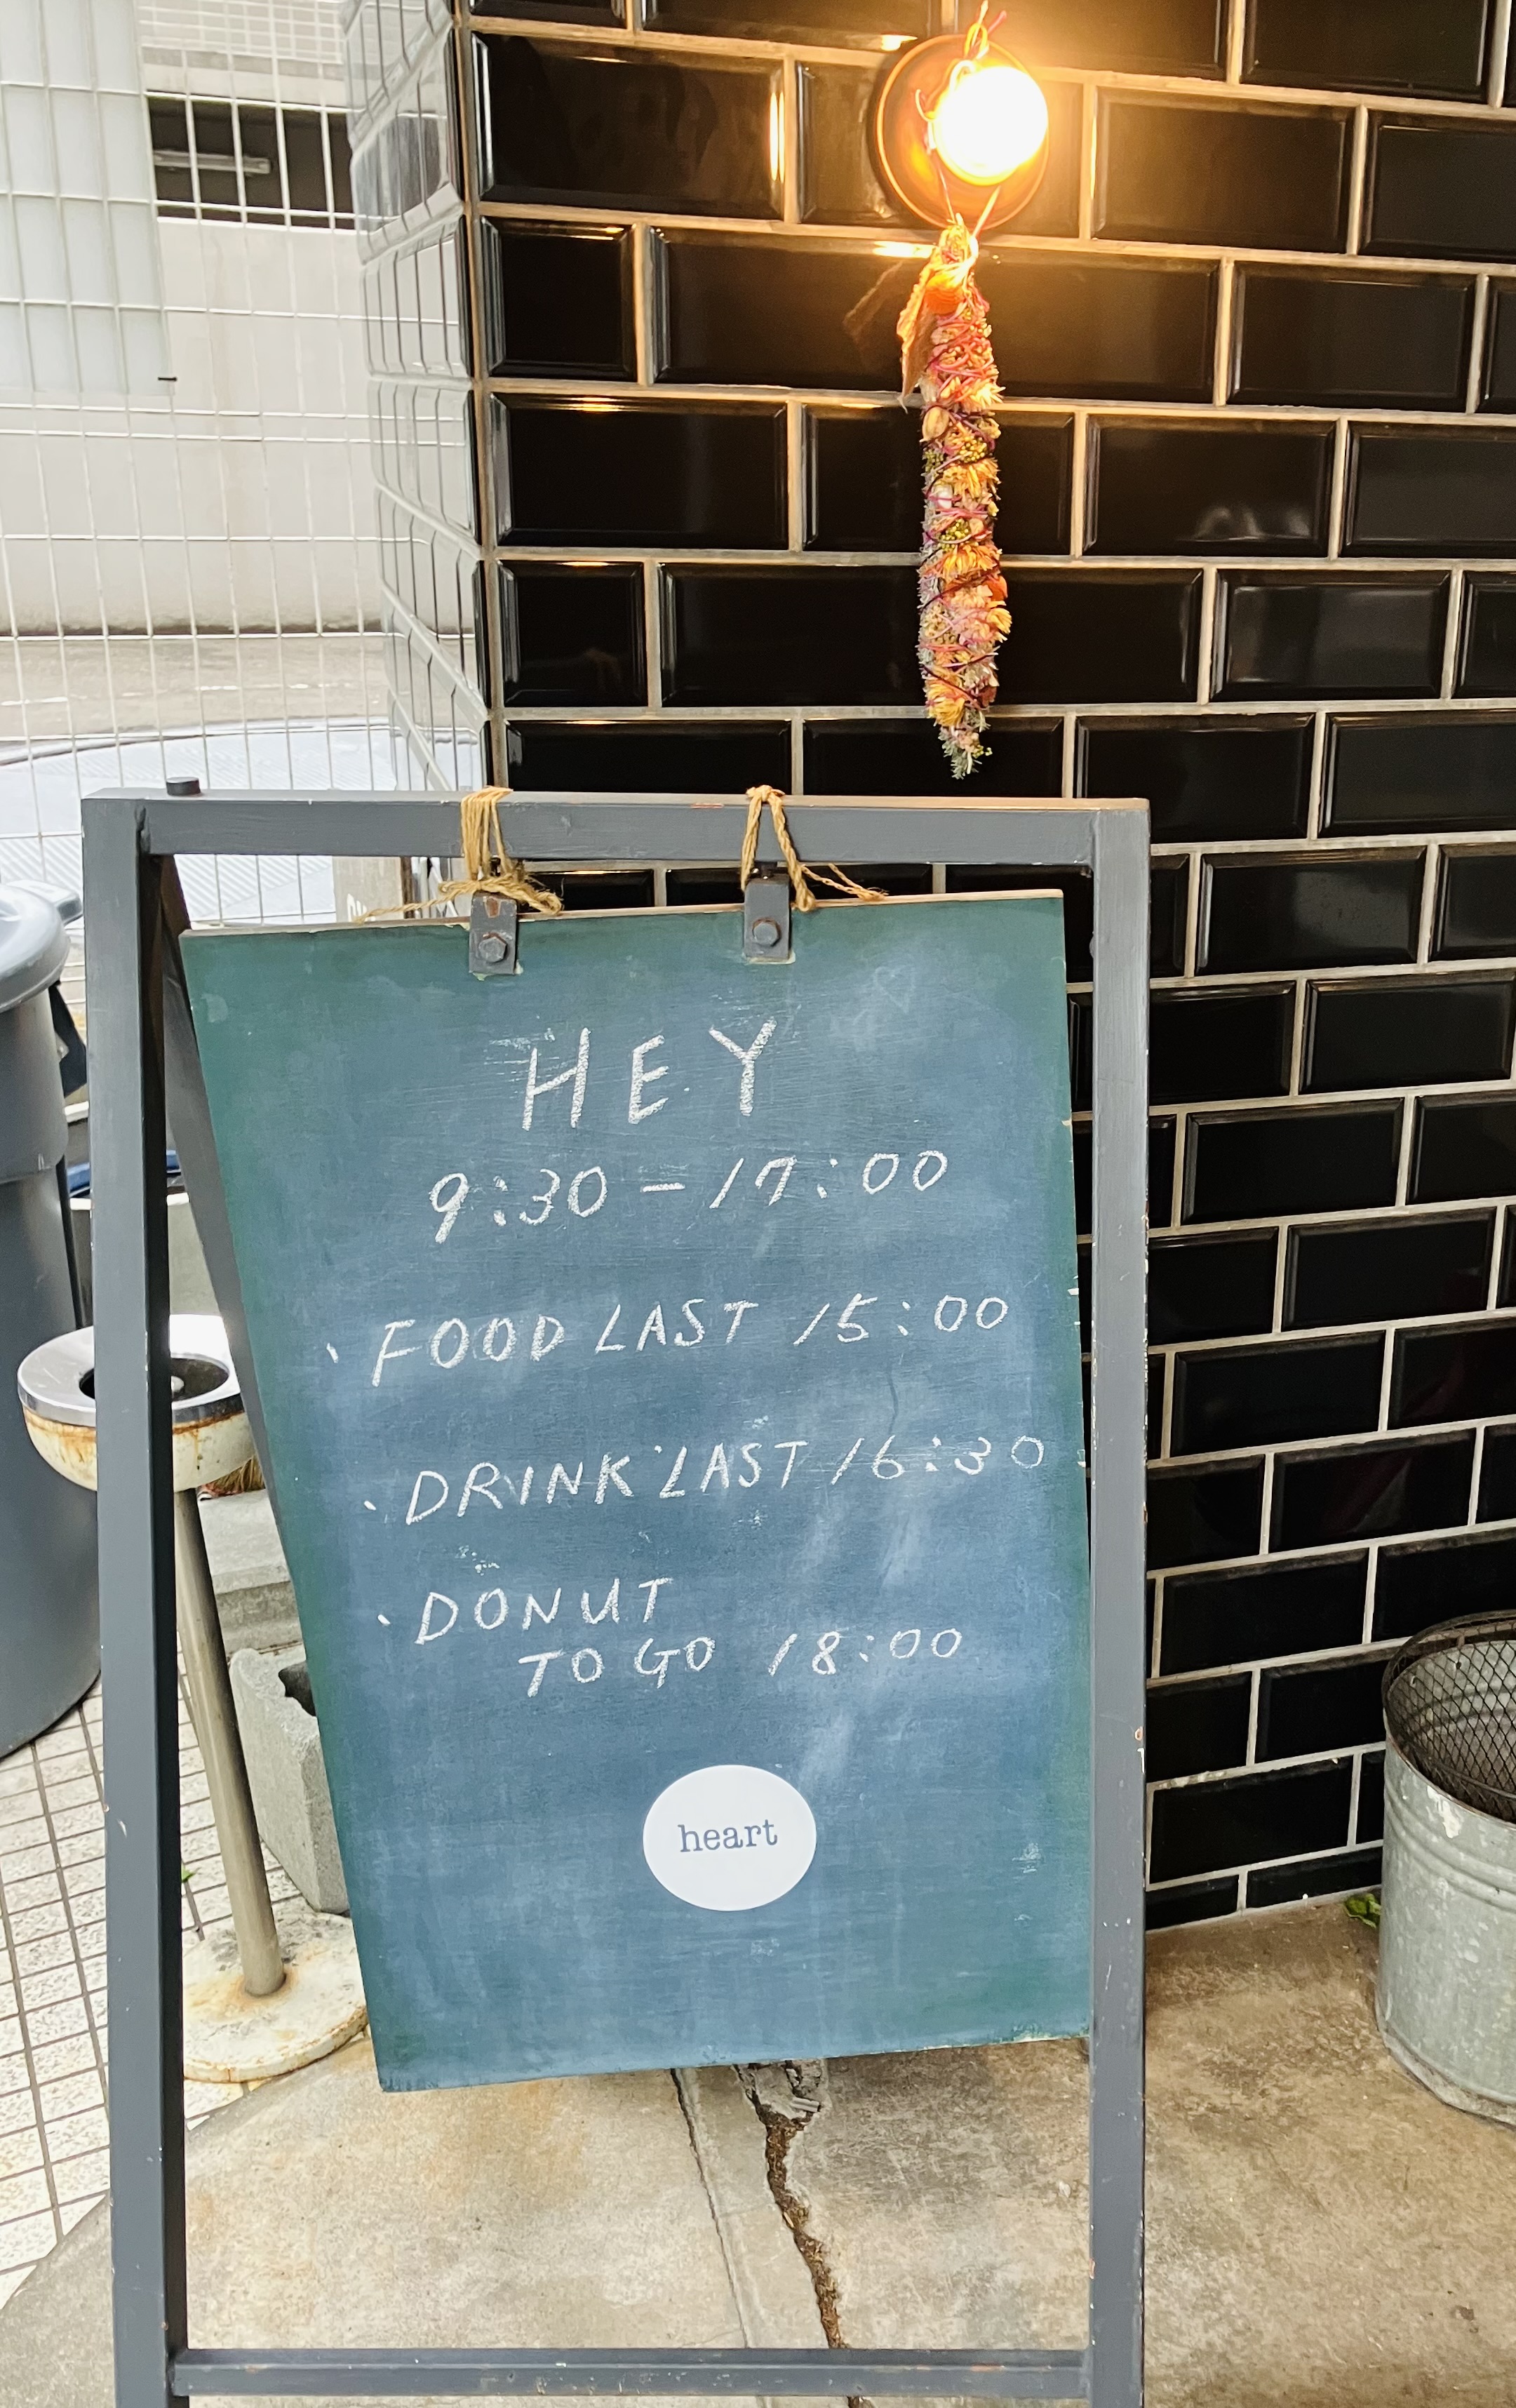 HEY
9:30-17:00
・FOOD LAST 15:00
・DRINK LAST 16:30
・DONUT
TO GO 18:00
heart